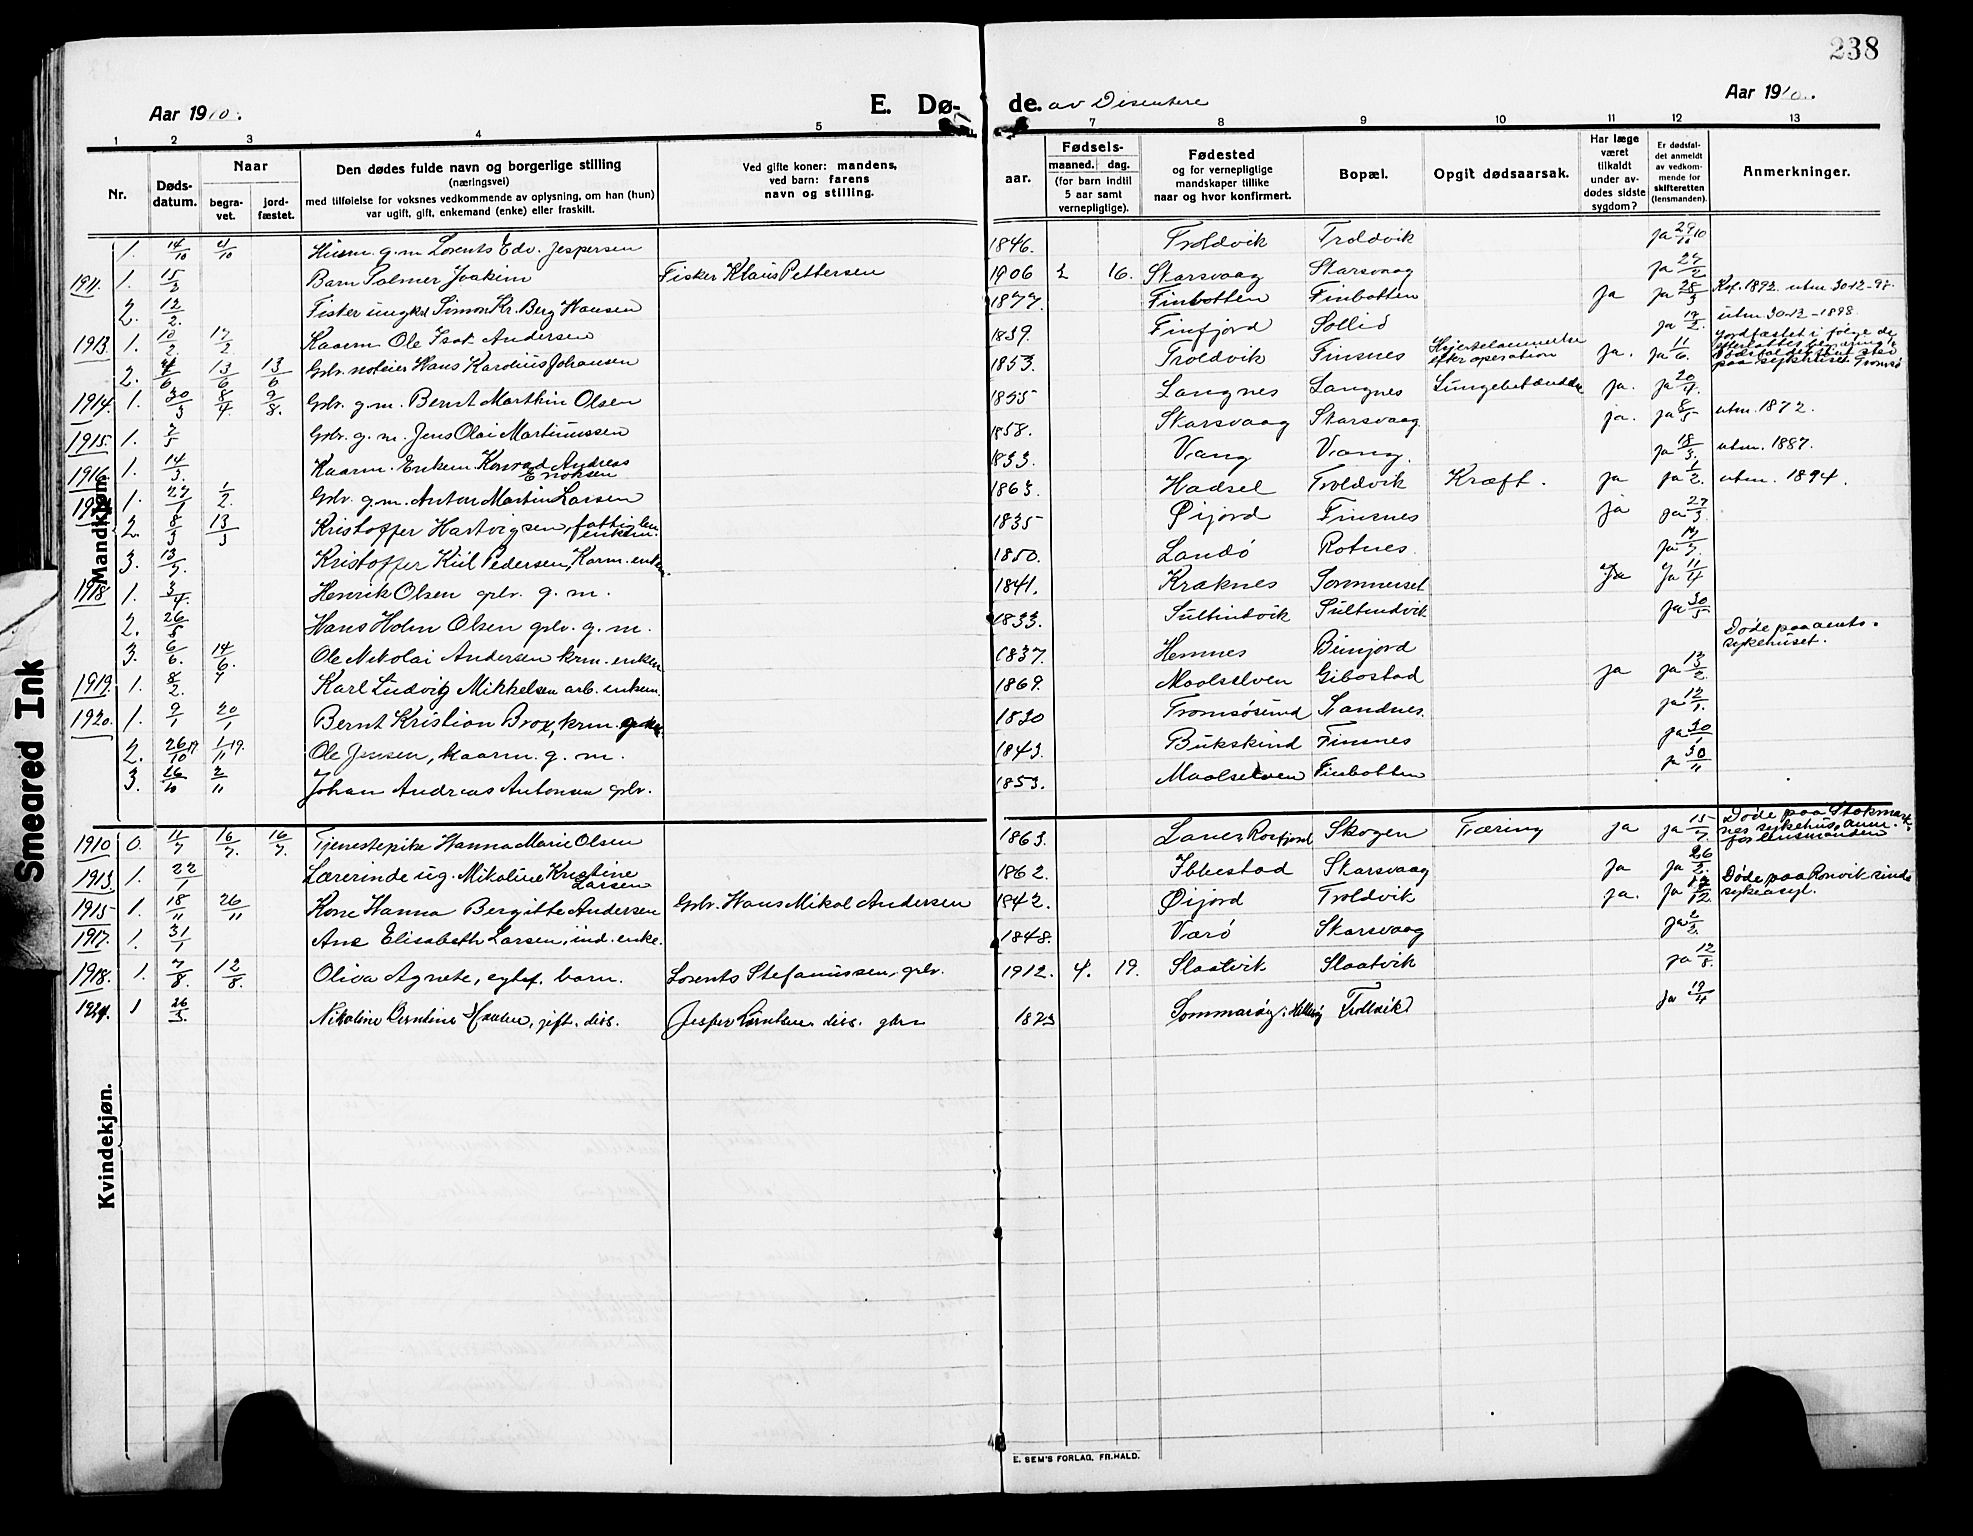 238
Aar 1910.
E. Dø- de. av Disentere
Aar 1910.
1 2 3 4 5 7 8 9 10 11 12 13
Nr.
Døds-
datum.
Naar
begra-
vet.
jord-
fæstet.
Den dødes fulde navn og borgerlige stilling
(næringsvei)
med tilføielse for voksnes vedkommende av oplysning, om han (hun)
var ugift, gift, enkemand (enke) eller fraskilt.
Ved gifte koner: mandens,
ved barn: farens
navn og stilling.
Fødsels-
aar. maaned. dag.
(for barn indtil
5 aar samt
vernepligtige).
Fødested
og for vernepligtige
mandskaper tillike
naar og hvor konfirmert.
Bopæl.
Opgit dødsaarsak.
Har læge
været
tilkaldt
under av-
dødes sidste
sygdom?
Er dødsfal-
det anmeldt
av vedkom-
mende for
skifteretten
(lensmanden).
Anmerkninger.
Mandkjøn.
1. 14/10 21/10 Husm. g. m. Lorents Edv. Jespersen 1846. Troldvik Troldvik ja 29/10 10
1911. 1. 15/2 Barn Palmer Joakim Fisker Klaus Pettersen 1906 2 16. Skarsvaag Skarsvaag ja 27/2
2. 12/2. Fisker ungkr. Simon Kr. Berg Hansen 1877. Finbotten Finbotten ja ja 28/3 Kof. 1892. utm 30-12-98.
1913. 1. 10/2 17/2 Kaarm Ole Isak Andersen 1839. Finfjord Sollid ja 17/2. utm 30-12-1898.
2. 4/6 13/6 13/6 Gbr. noteier Hans Karolius Johansen 1853. Troldvik Finsnes Hjertelammelse efter operation ja. ja 11/6. Jordfæstet i følge de paa sykehuset Tromsø
1914. 1. 30/3 8/4. 9/8. Gbr. g. m. Bernt Marthin Olsen 1855 Langnes Langnes Lungebetændelse ja. ja 20/4.
1915. 1. 7/5 Gbr. g. m. Jens Olai Martinussen 1858. Skarsvaag Skarsvaag ja. ja 8/5 utm. 1872.
1916. 1. 14/3. Kaarm. Enkem Konrad Andreas Enoksen 1833. Vang Vang. ja 18/3. utm. 1887.
1. 27/1 1/2. Gbr. g. m. Anton Martin Larsen 1863. Hadsel Troldvik Kræft. ja ja 1/2. utm. 1894.
2. 8/3 13/3 Kristoffer Hartvigsen, fattiglem enkem. 1835 Øijord Finsnes ja ja 27/3.
3. 13/7. Kristoffer Kiil Pedersen, Karm. enkem. 1850. Landø Rotnes. ja 17/7.
1918. 1. 3/4. Henrik Olsen gbr. g. m. 1841. Kraknes Sommerset Ja Ja 11/4
2. 26/5 Hans Holm Olsen gbr. g. m. 1833. Sultindvik Sultindvik ja 30/5
3. 6/6. 14/6. Ole Nikolai Andersen krm. enkem 1837. Hemnes Beinjord Døde paa amts-sykehuset.
1919. 1. 8/2. Karl Ludvig Mikkelsen arb. enkem. 1869. Maalselven Gibostad ja ja 13/2.
1920. 1. 9/1 20/1 Bernt Kristian Brox, krm. 1830 Tromsøsund Sandnes. ja 12/1.
2. 26/10 19 1/11 19. Ole Jensen, Kaarm. g. m. 1843. Bukskind Finsnes ja 30/
3. 26/10 2/11 Johan Andreas Antonsen gbr. 1853. Maalselven Finbotten ja 30/11
Kvindekjøn.
1910 0. 11/7 16/7. 16/7. Tjenestepike Hanna Marie Olsen 1863. Skogen Tæring ja ja 15/7. Døde paa Stokmark-nes sykehus. anm. for lensmanden
1913. 1. 22/1 Lærerinde ug. Mikoline Kristine Larsen 1862. Ibbestad Skarsvaag ja ja 26/2.
1915 1. 18/11 26/11 Kone Hanna Bergitte Andersen Gbr. Hans Mikal Andersen 1842. Øijord Troldvik ja. ja /12. Døde paa Ronvik sinds sykeasyl.
1917. 1. 31/1 Ane Elisabeth Larsen, ind. enke. 1848. Varø Skarsvaag ja 2/2.
1918. 1. 7/8. 12/8. Oliva Agnete, egtef. barn. Lorents Stefanussen, gbr. 1912. 4. 19. Slaatvik Slaatvik ja 12/8.
1924. 1 26/3. Nikoline Berntine Hansen, gift. diss. Jesper Lorntsen diss. gbr 1873 Trollvik ja 12/4
E. SEM'S FORLAG, FR.HALD.
Smeared Ink